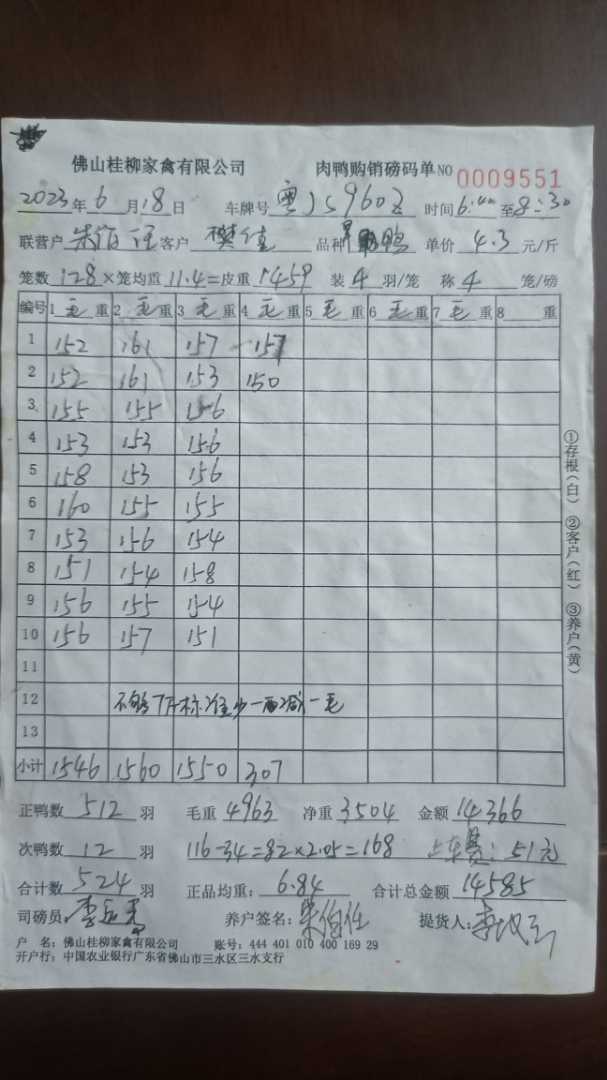 佛山桂柳家禽有限公司 肉鸭购销磅码单 NO 0009551
2023年6月18日 车牌号 粤J59602 时间6:40至8:30
联营户 客户 樊佳 品种 鸭 单价 4.3 元/斤
笼数 128×笼均重 11.4=皮重 1459 装 4 羽/笼 称 4 笼/磅
编号 1毛重 2毛重 3毛重 4毛重 5毛重 6毛重 7毛重 8 重
1 152 161 157 157
2 152 161 153 150
3 155 155 156
4 153 153 156
5 158 153 156
6 160 155 155
7 153 156 154
8 151 154 158
9 156 155 154
10 156 157 151
11
12 不够7斤标准少一两减一毛
13
小计 1546 1560 1550 307
正鸭数 512 羽 毛重 4963 净重 3504 金额 14366
次鸭数 12 羽 116-34=82×2.05=168 上车费: 51元
合计数 524 羽 正品均重: 6.84 合计总金额 14585
司磅员: 养户签名: 提货人:
户 名: 佛山桂柳家禽有限公司 账号: 444 401 010 400 169 29
开户行: 中国农业银行广东省佛山市三水区三水支行
①存根(白) ②客户(红) ③养户(黄)